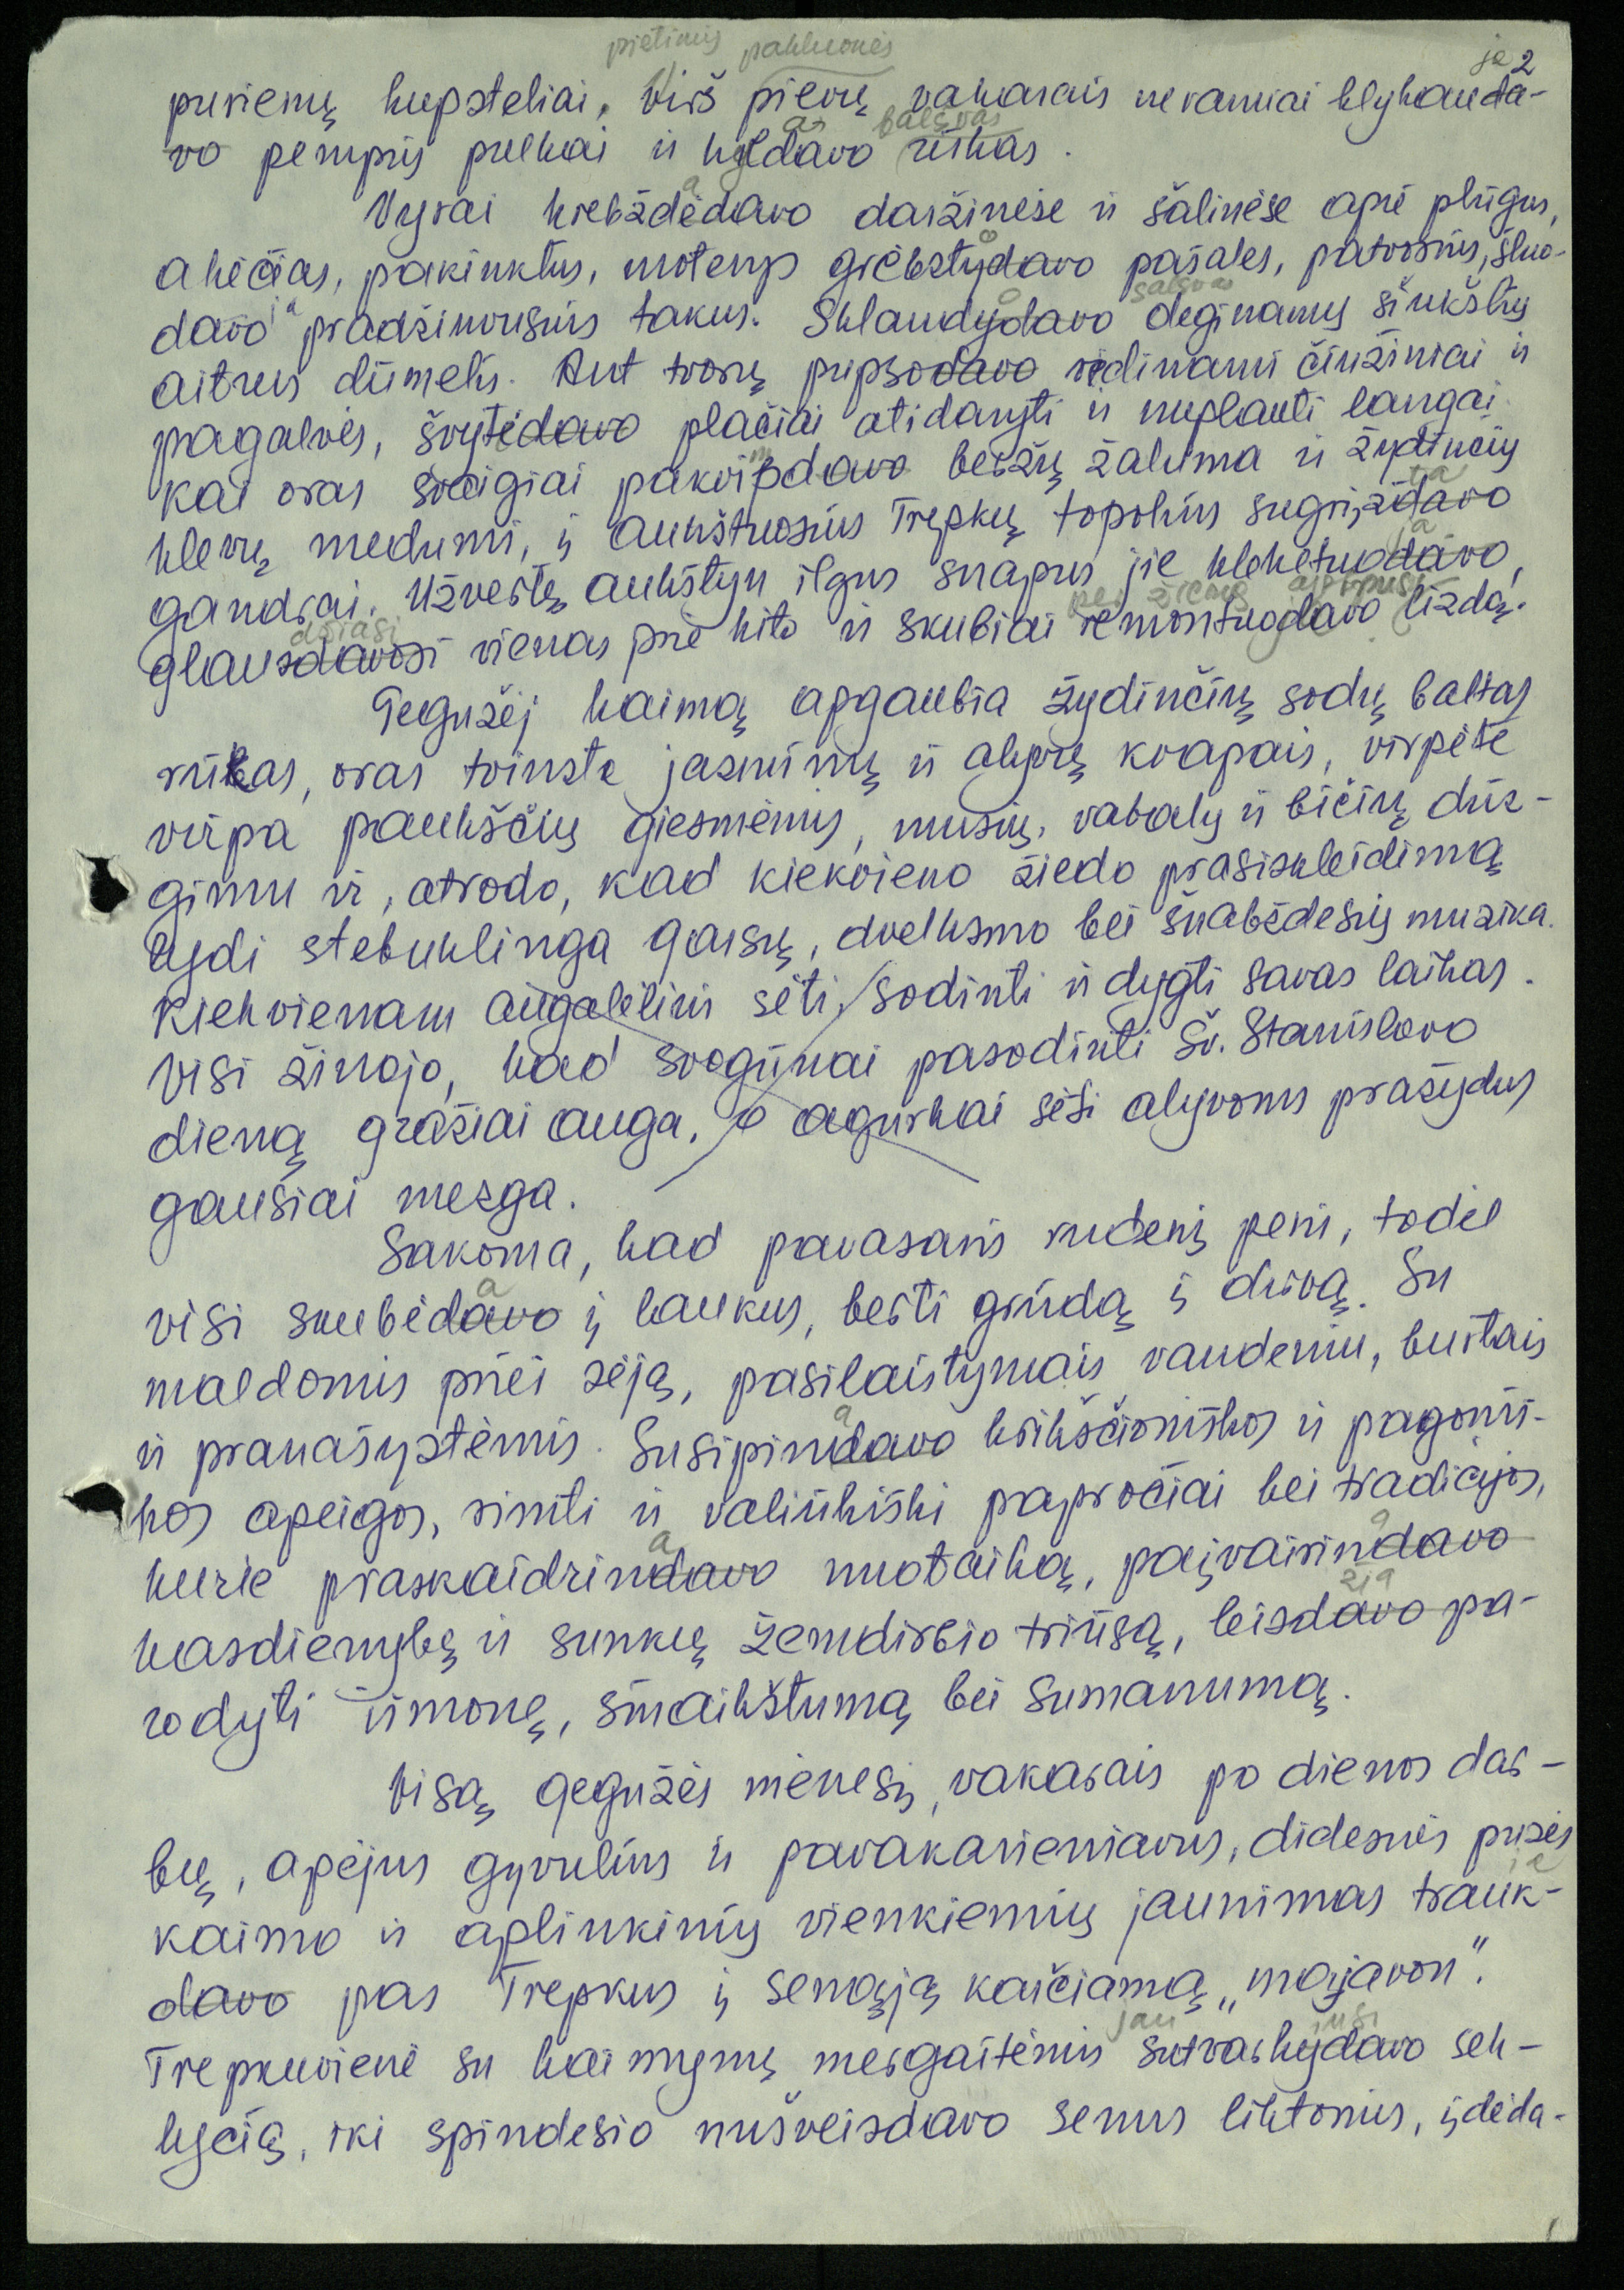 pietinių pakluonės
ja 2
puriemų kupsteliai. Virš pievų vakarais neramiai klykauda-
vo pempių pulkai ir kyldavo rūkas.
a balsvas
Vyrai krebždėdavo daržinėse ir šalinėse apie plūgus,
akėčias, pakinktus, moterys griebstydavo pašales, patvorius, šluo-
davo pradžiuvusius takus. Sklandydavo deginamų šiukšlių
aitrus dūmelis. Ant tvorų pupsodavo vėdinami čiužiniai ir
pagalvės, švytėdavo plačiai atidaryti ir nuplauti langai.
Kai oras svaigiai pakvipdavo beržų žaluma ir žydinčių
klevų medumi, į aukštuosius Trepkų topolius sugrįždavo
gandrai. Užvertę aukštyn ilgus snapus jie kleketuodavo,
glausdavosi vienas prie kito ir skubiai remontuodavo lizdą.
Gegužėj kaimą apgaubia žydinčių sodų baltas
rūkas, oras tvinsta jazminų ir alyvų kvapais, virpėte
virpa paukščių giesmėmis, musių, vabalų ir bičių dūz-
gimu ir, atrodo, kad kiekvieno žiedo prasiskleidimą
lydi stebuklinga garsų, dvelksmo bei šnabždesių muzika.
Kiekvienam augalėliui sėti, sodinti ir dygti savas laikas.
Visi žinojo, kad svogūnai pasodinti Šv. Stanislovo
dieną gražiai auga, o agurkai sėti alyvoms pražydus
gausiai mezga.
Sakoma, kad pavasaris rudenį peni, todėl
visi skubėdavo į laukus, berti grūdą į dirvą. Su
maldomis prieš sėją, pasilaistymais vandeniu, burtais
ir pranašystėmis. Susipindavo krikščioniškos ir pagoniš-
kos apeigos, rimti ir valiūkiški papročiai bei tradicijos,
kurie praskaidrindavo nuotaiką, paįvairindavo
kasdienybę ir sunkų žemdirbio triūsą, leisdavo pa-
rodyti išmonę, šmaikštumą bei sumanumą.
Visą gegužės mėnesį, vakarais po dienos dar-
bų, apėjus gyvulius ir pavakarieniavus, didesnės pusės
kaimo ir aplinkinių vienkiemių jaunimas trauk-
davo pas Trepkus į senąją karčiamą „majavon".
jau
Trepkuvienė su kaimynų mergaitėmis sutvarkydavo sek-
lyčią, iki spindesio nušveisdavo senus liktorius, įdėda-